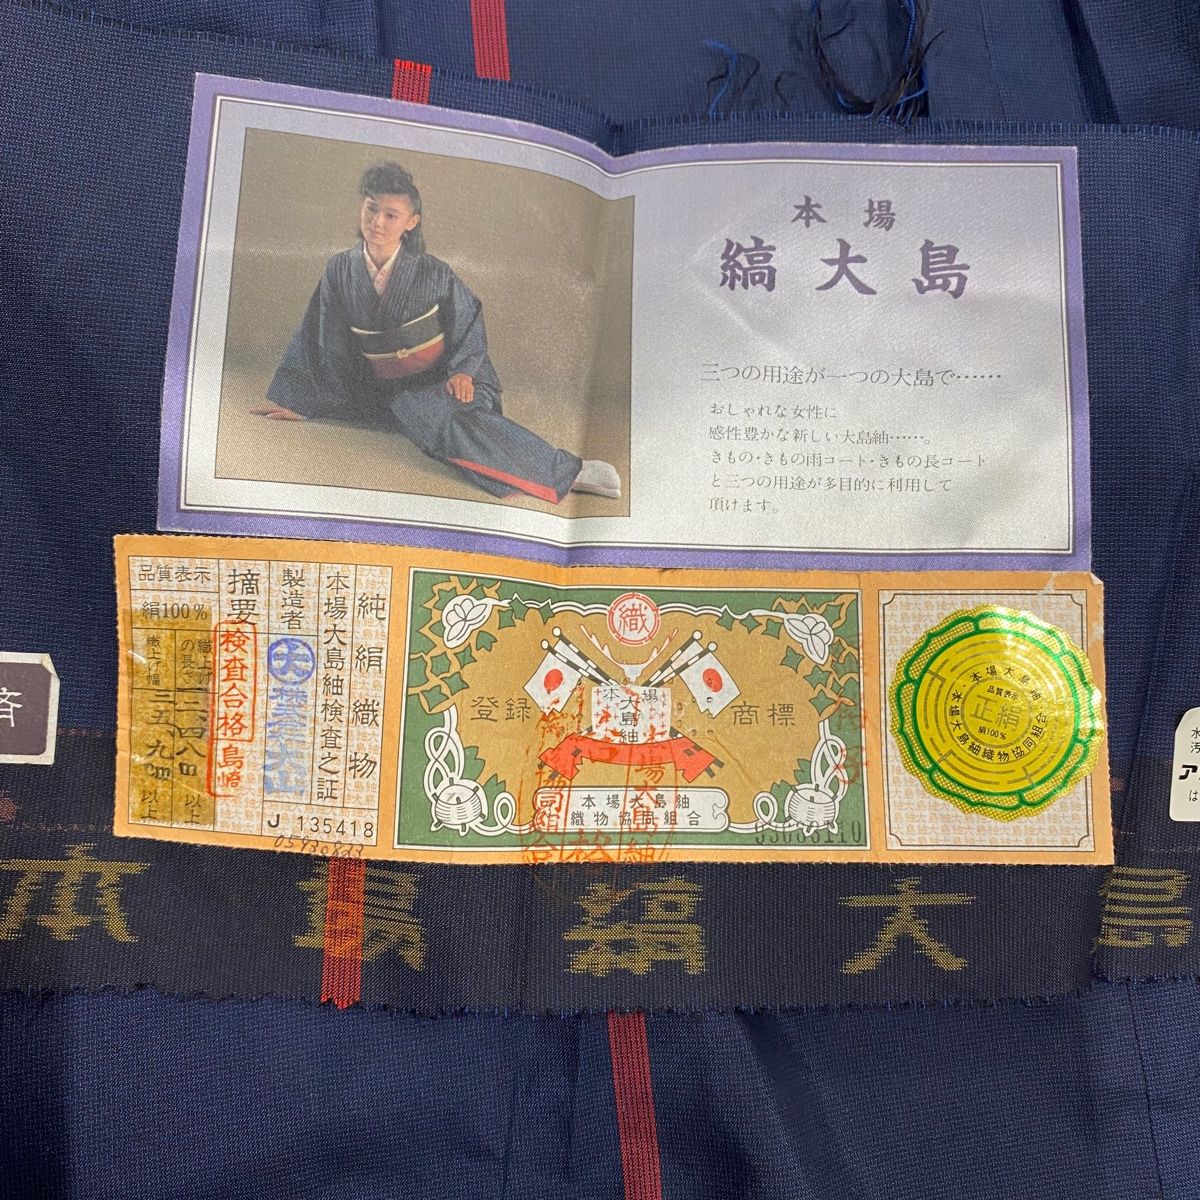 本場
縞大島
三つの用途が一つの大島で……
おしゃれな女性に
感性豊かな新しい大島紬……。
きもの・きもの雨コート・きもの長コート
と三つの用途が多目的に利用して
頂けます。
純絹織物
本場大島紬検査之証
製造者
摘要
検査合格
品質表示
絹100%
織上げの長さ
一二、四八m以上
織上げ幅
三五、九cm以上
J 135418
織
登録
商標
本場
大島
紬
本場大島紬
織物協同組合
本場大島紬
品質表示
正絹
絹100%
本場大島紬織物協同組合
本
島縞大
島
済
水
汚
ア
は